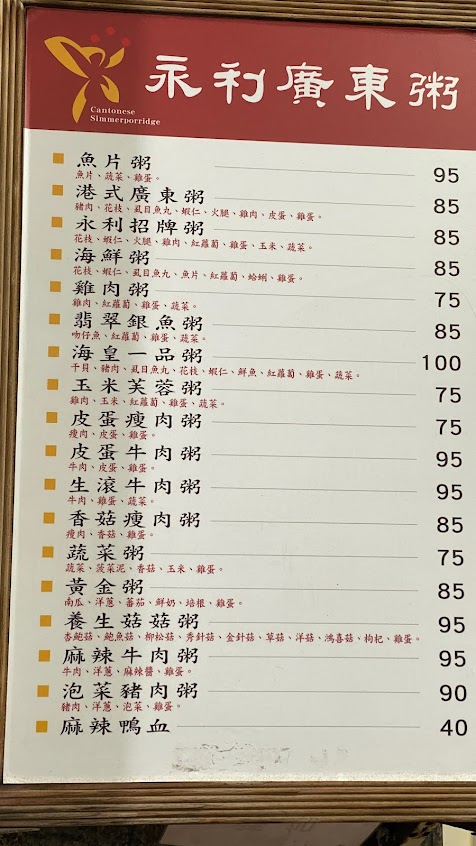 永利廣東粥
Cantonese
Simmerporridge
魚片粥 95
魚片、蔬菜、雞蛋。
港式廣東粥 85
豬肉、花枝、虱目魚丸、蝦仁、火腿、雞肉、皮蛋、雞蛋。
永利招牌粥 85
花枝、蝦仁、火腿、雞肉、紅蘿蔔、雞蛋、玉米、蔬菜。
海鮮粥 85
花枝、蝦仁、虱目魚丸、魚片、紅蘿蔔、蛤蜊、雞蛋。
雞肉粥 75
雞肉、紅蘿蔔、雞蛋、蔬菜。
翡翠銀魚粥 85
吻仔魚、紅蘿蔔、雞蛋、蔬菜。
海皇一品粥 100
干貝、豬肉、虱目魚丸、花枝、蝦仁、鮮魚、紅蘿蔔、雞蛋、蔬菜。
玉米芙蓉粥 75
雞肉、玉米、紅蘿蔔、雞蛋、蔬菜。
皮蛋瘦肉粥 75
瘦肉、皮蛋、雞蛋。
皮蛋牛肉粥 95
牛肉、皮蛋、雞蛋。
生滾牛肉粥 95
牛肉、雞蛋、蔬菜。
香菇瘦肉粥 85
瘦肉、香菇、雞蛋。
蔬菜粥 75
蔬菜、菠菜泥、香菇、玉米、雞蛋。
黃金粥 85
南瓜、洋蔥、蕃茄、鮮奶、培根、雞蛋。
養生菇菇粥 95
杏鮑菇、鮑魚菇、柳松菇、秀針菇、金針菇、草菇、洋菇、鴻喜菇、枸杞、雞蛋。
麻辣牛肉粥 95
牛肉、洋蔥、麻辣醬、雞蛋。
泡菜豬肉粥 90
豬肉、洋蔥、泡菜、雞蛋。
麻辣鴨血 40